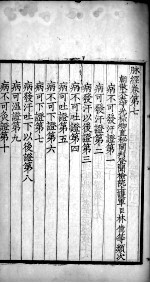 脉經卷第七
朝散大夫守光祿直秘閣判登聞檢院護軍臣林億等類次
病不可發汗證第一
病可發汗證第二
病發汗以後證第三
病不可吐證第四
病可吐證第五
病不可下證第六
病可下證第七
病發汗吐下以後證第八
病可溫證第九
病不可灸證第十